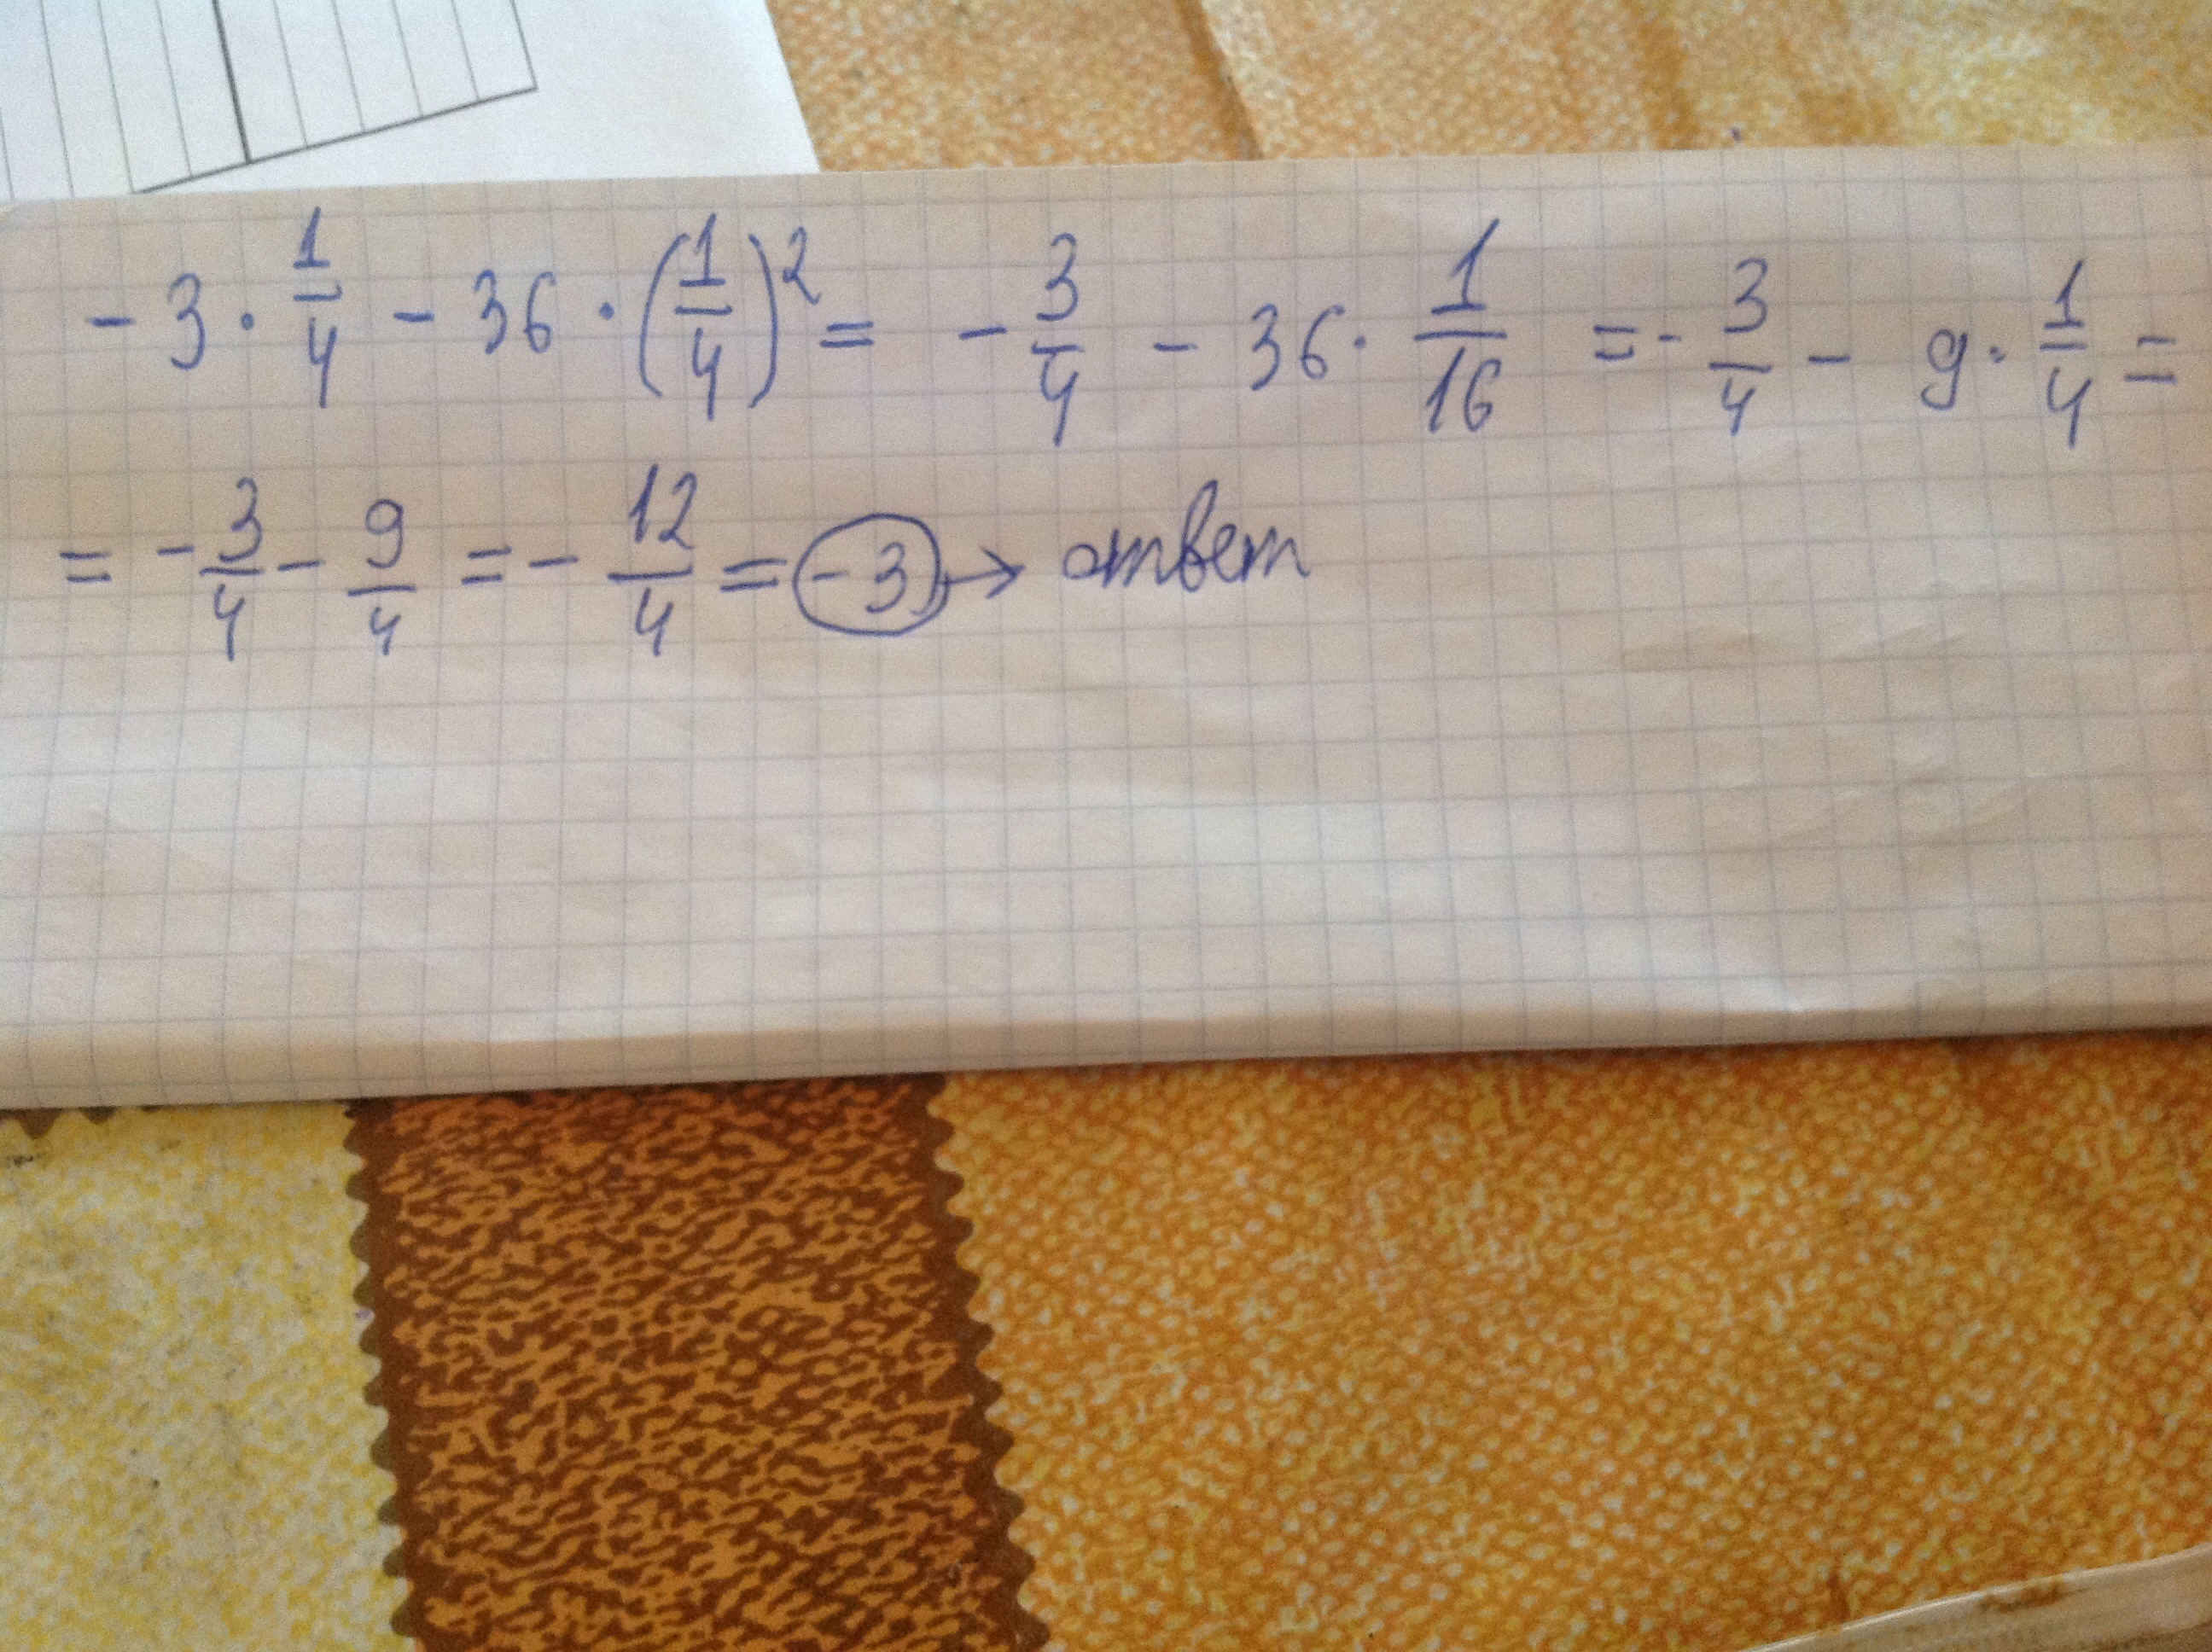 - 3 · 1/4 - 36 · (1/4)² = - 3/4 - 36 · 1/16 = - 3/4 - 9 · 1/4 =
= - 3/4 - 9/4 = - 12/4 = -3 → ответ